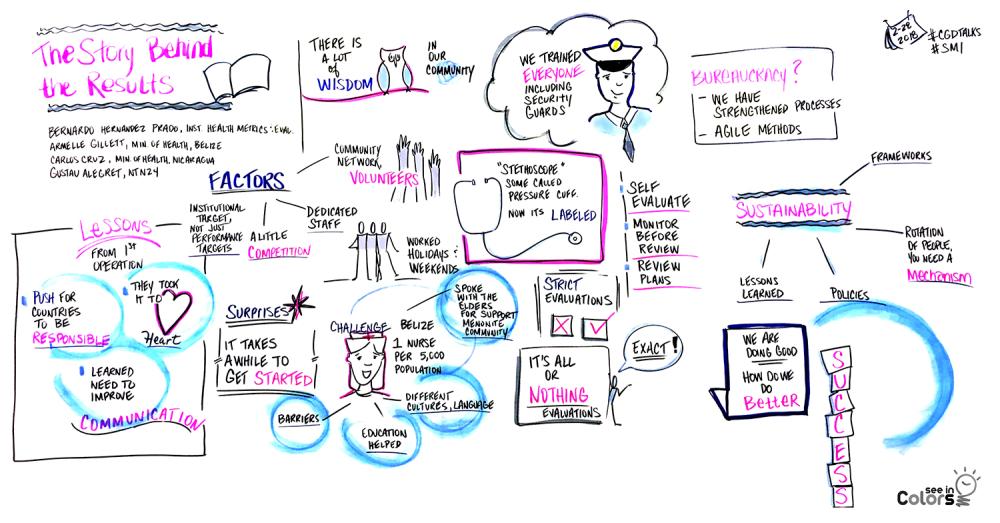 The Story Behind
the Results
BERNARDO HERNANDEZ PRADO, INST. HEALTH METRICS: EVAL.
ARMELLE GILLETT, MIN. OF HEALTH, BELIZE
CARLOS CRUZ, MIN OF HEALTH, NICARAGUA
GUSTAU ALEGRET, NTN24
THERE IS
A LOT
of
WISDOM
IN
OUR
COMMUNITY
WE TRAINED
EVERYONE
INCLUDING
SECURITY
GUARDS
BURCHUCKACY?
- WE HAVE
STRENGTHENED PROCESSES
- AGILE METHODS
2-28
2018
#CGDTALKS
#SMI
FACTORS
COMMUNITY
NETWORK,
VOLUNTEERS
INSTITUTIONAL
TARGET,
NOT JUST
PERFORMANCE
TARGETS
A LITTLE
COMPETITION
DEDICATED
STAFF
WORKED
HOLIDAYS &
WEEKENDS
"STETHOSCOPE"
SOME CALLED
PRESSURE CUFF.
NOW ITS LABELED
SELF
EVALUATE
MONITOR
BEFORE
REVIEW
REVIEW
PLANS
FRAMEWORKS
SUSTAINABILITY
ROTATION
OF PEOPLE,
YOU NEED A
Mechanism
LESSONS
LEARNED
POLICIES
LESSONS
FROM 1ST
OPERATION
PUSH FOR
COUNTRIES
TO BE
RESPONSIBLE
THEY TOOK
IT TO
Heart
LEARNED
NEED TO
IMPROVE
COMMUNICATION
SURPRISES
IT TAKES
AWHILE TO
GET STARTED
CHALLENGE
BELIZE
1 NURSE
PER 5,000
POPULATION
SPOKE
WITH THE
ELDERS
FOR SUPPORT
MENONITE
COMMUNITY
DIFFERENT
CULTURES, LANGUAGE
BARRIERS
EDUCATION
HELPED
STRICT
EVALUATIONS
IT'S ALL
OR
NOTHING
EVALUATIONS
EXACT!
WE ARE
DOING GOOD
HOW DO WE
DO
Better
SUCCESS
see in
Colors